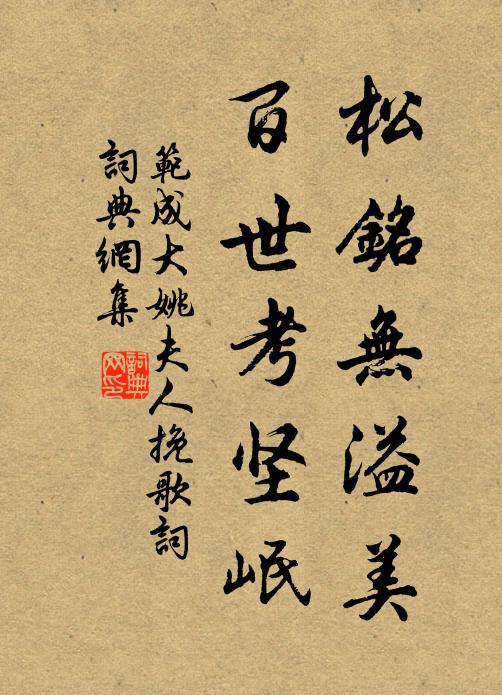 松銘無溢美
百世考坚岷
範成大姚夫人挽歌詞
詞典網集
詞典网印